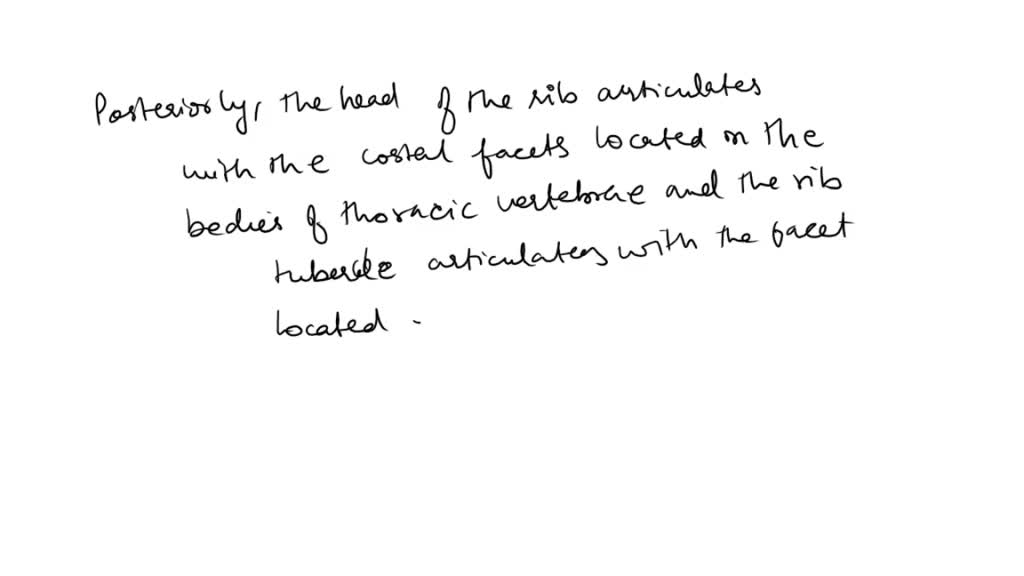 Posteriorly, the head of the rib articulates
with the costal facets located on the
bodies of thoracic vertebrae and the rib
tubercle articulates with the facet
located .